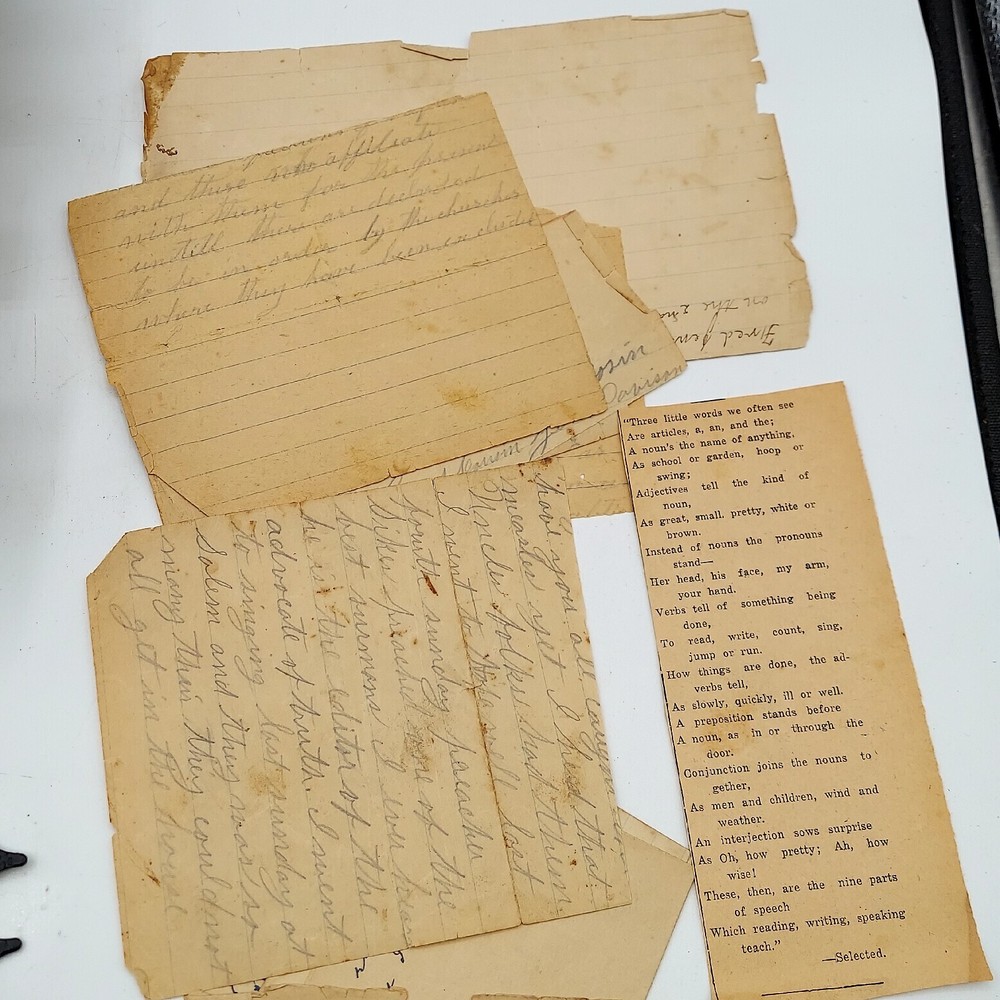 and these who affiliate
with them for the present
untill there are declared
to be in order by the churches
where they have been exclude
on the 2nd
Fired
osin
Davison
have you all caugh
measles yet I heed that
Uncles folks had them.
I went to Hopewell last
fourth sunday preacher
Sikes preached one of the
best surmons I ever hear
he is the editor of the
advocate of truth. I went
to singing last sunday at
Salem and they was so
many their they could not
all get in the house
"Three little words we often see
Are articles, a, an, and the;
A noun's the name of anything,
As school or garden, hoop or
swing;
Adjectives tell the kind of
noun,
As great, small. pretty, white or
brown.
Instead of nouns the pronouns
stand—
Her head, his face, my arm,
your hand.
Verbs tell of something being
done,
To read, write, count, sing,
jump or run.
How things are done, the ad-
verbs tell,
As slowly, quickly, ill or well.
A preposition stands before
A noun, as in or through the
door.
Conjunction joins the nouns to
gether,
As men and children, wind and
weather.
An interjection sows surprise
As Oh, how pretty; Ah, how
wise!
These, then, are the nine parts
of speech
Which reading, writing, speaking
teach."
—Selected.